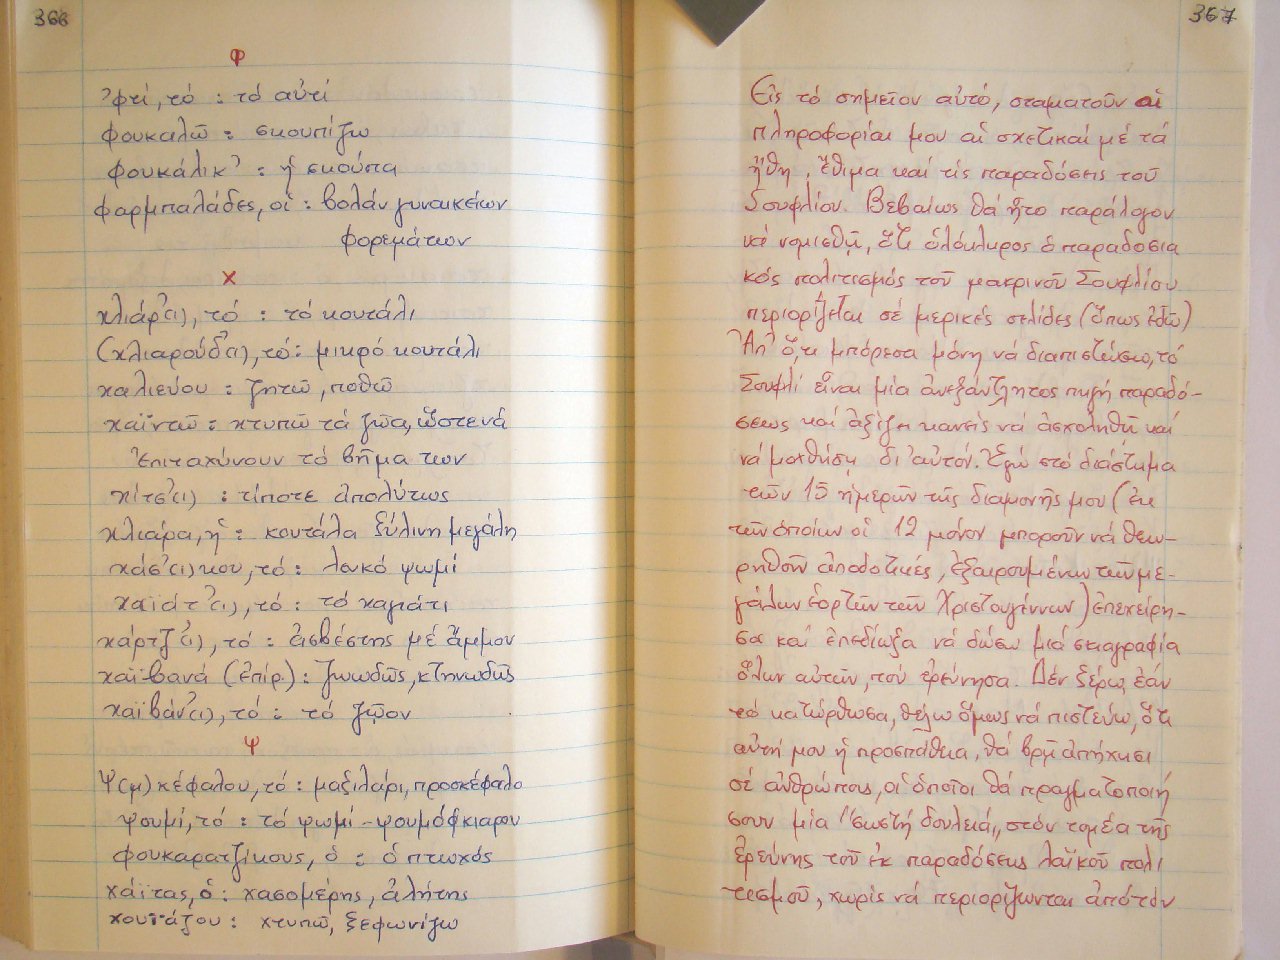 366
Φ
᾿φτί, τό : τό αὐτί
φουκαλῶ : σκουπίζω
φουκάλικ᾿ : ἡ σκούπα
φαρμπαλάδες, οἱ : βολάν γυναικείων
φορεμάτων
Χ
χλιάρ᾿(ι), τό : τό κουτάλι
(χλιαρούδ᾿(ι), τό: μικρό κουτάλι
χαλιεύου : ζητῶ, ποθῶ
χαϊντῶ : χτυπῶ τά ζῶα, ὥστε νά
ἐπιταχύνουν τό βῆμα των
χίτσ᾿(ι) : τίποτε ἀπολύτως
χλιάρα, ἡ : κουτάλα ξύλινη μεγάλη
χάσ᾿(ι)κου, τό : λευκό ψωμί
χαϊάτ᾿(ι), τό : τό χαγιάτι
χάρτζ᾿(ι), τό : ἀσβέστης μέ ἄμμον
χαϊβανά (ἐπίρ.) : ζωωδῶς, κτηνωδῶς
χαϊβάν᾿(ι), τό : τό ζῷον
Ψ
Ψ(μ)κέφαλου, τό : μαξιλάρι, προσκέφαλο
ψουμί, τό : τό ψωμί - ψουμόφκιαρου
φουκαρατζίκους, ὁ : ὁ πτωχός
χάϊτας, ὁ : χασομέρης, ἀλήτης
χουϊάζου : χτυπῶ, ξεφωνίζω
367
Εἰς τό σημεῖον αὐτό, σταματοῦν αἱ
πληροφορίαι μου αἱ σχετικαί μέ τά
ἤθη, ἔθιμα καί τίς παραδόσεις τοῦ
Σουφλίου. Βεβαίως θά ἦτο παράλογον
νά νομισθῇ, ὅτι ὁλόκληρος ὁ παραδοσια
κός πολιτισμός τοῦ μακρινοῦ Σουφλίου
περιορίζεται σέ μερικές σελίδες (ὅπως ἐδῶ)
Ἀπ᾿ ὅ,τι μπόρεσα μόνη νά διαπιστεύσω, τό
Σουφλί εἶναι μία ἀνεξάντλητος πηγή παραδό-
σεως καί ἀξίζει κανείς νά ἀσχοληθῇ καί
νά μοχθήσῃ δι᾿ αὐτόν. Ἐγώ στό διάστημα
τῶν 15 ἡμερῶν τῆς διαμονῆς μου (ἐκ
τῶν ὁποίων οἱ 12 μόνον μποροῦν νά θεω-
ρηθοῦν ἀποδοτικές, ἐξαιρουμένων τῶν με-
γάλων ἑορτῶν τῶν Χριστουγέννων) ἐπεχείρη-
σα καί ἐπεδίωξα νά δώσω μιά σκιαγραφία
ὅλων αὐτῶν, πού ἐρεύνησα. Δέν ξέρω, ἐάν
τό κατώρθωσα, θέλω ὅμως νά πιστεύω, ὅτι
αὐτή μου ἡ προσπάθεια, θά βρῇ ἀπήχησι
σέ ἀνθρώπους, οἱ ὁποῖοι θά πραγματοποιή
σουν μία "σωστή δουλειά„ στόν τομέα τῆς
ἐρεύνης τοῦ ἐκ παραδόσεως λαϊκοῦ πολι
τισμοῦ, χωρίς νά περιορίζωνται ἀπό τόν